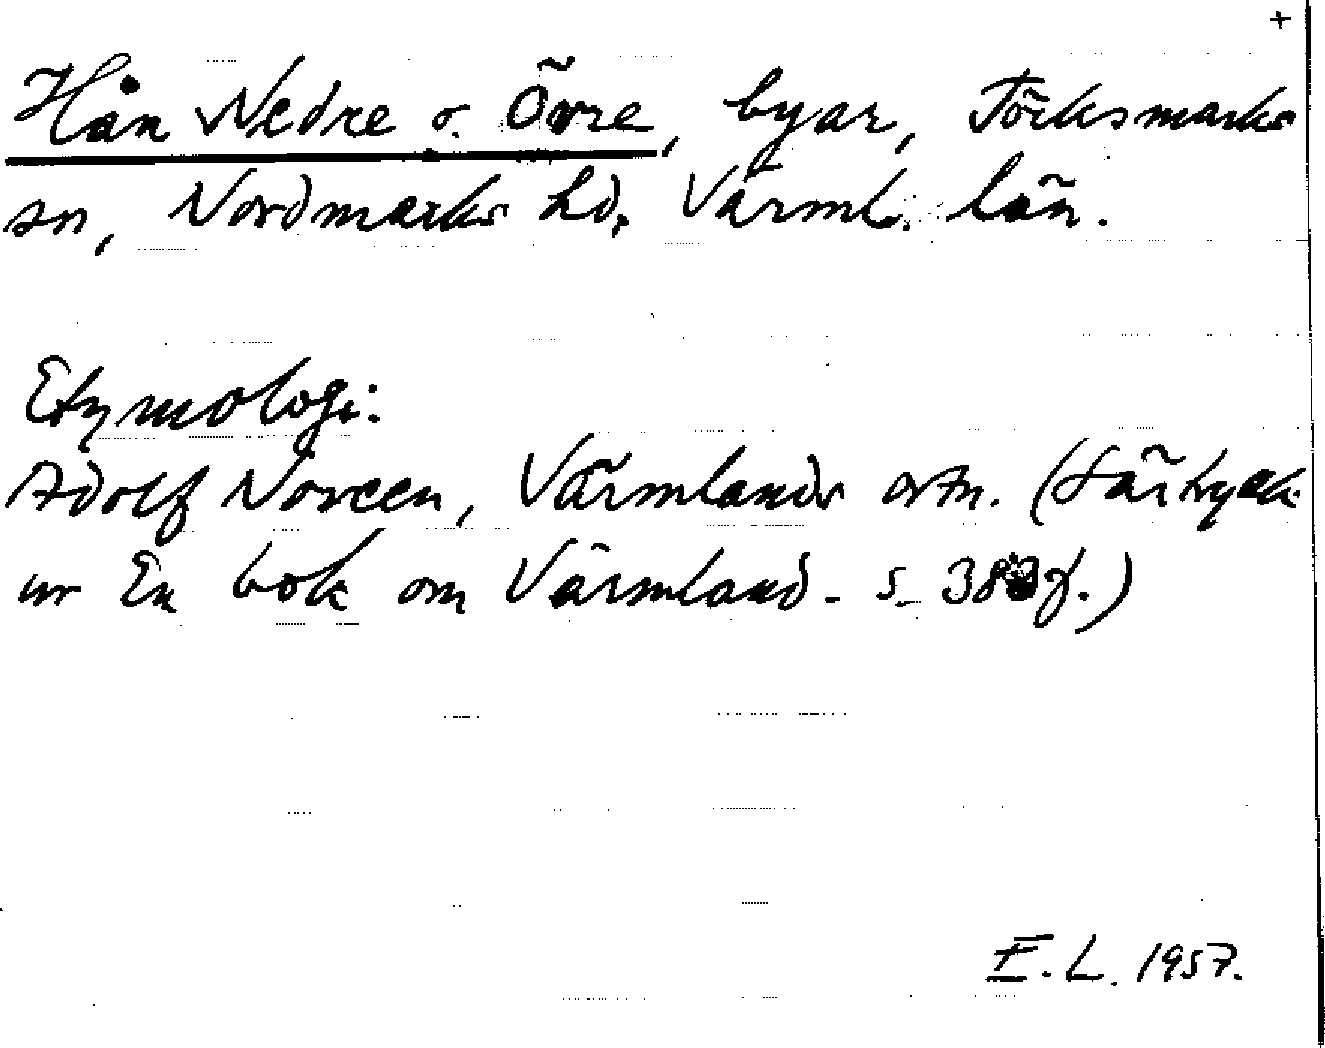 +
Hån Nedre o. Övre, byar, Töcksmarks
sn, Nordmarks hd, Värml. län.
Etymologi:
Adolf Noreen, Värmlands ortn. (Särtryck
ur En bok om Värmland. s. 383f.)
E.L. 1957.